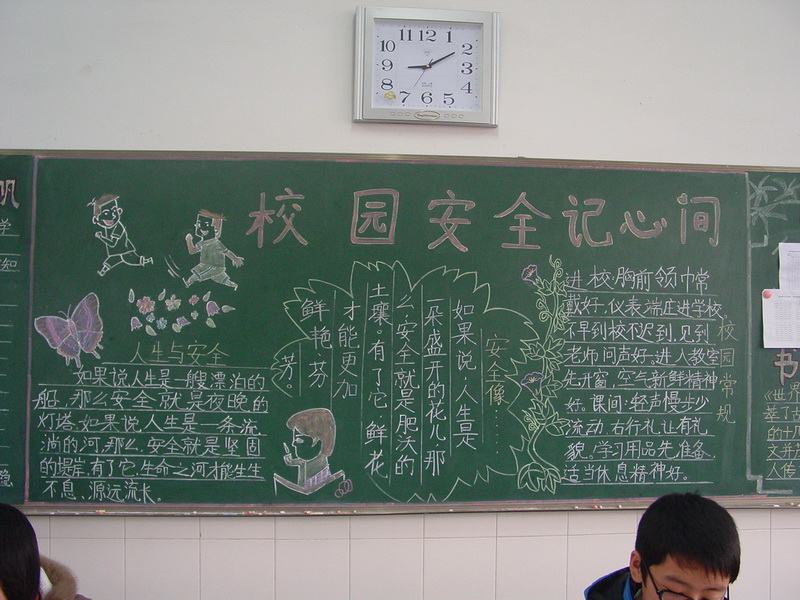 校园安全记心间
人生与安全
如果说人生是一艘漂泊的
船,那么安全就是夜晚的
灯塔。如果说人生是一条流
淌的河,那么,安全就是坚固
的堤岸,有了它,生命之河才能生生
不息、源远流长。
安全像……
如果说人生是
一朵盛开的花儿,那
么,安全就是肥沃的
土壤,有了它,鲜花
才能更加
鲜艳、芬
芳。
校园常规
进校:胸前领巾常
戴好,仪表端庄进学校。
不早到校不迟到,见到
老师问声好;进入教室
先开窗,空气新鲜精神
好。课间:轻声慢步少
流动,右行礼让有礼
貌。学习用品先准备,
适当休息精神好。
帆
学
知
书
《世界
文
人传
11 12 1
10 2
9 3
8 4
7 6 5